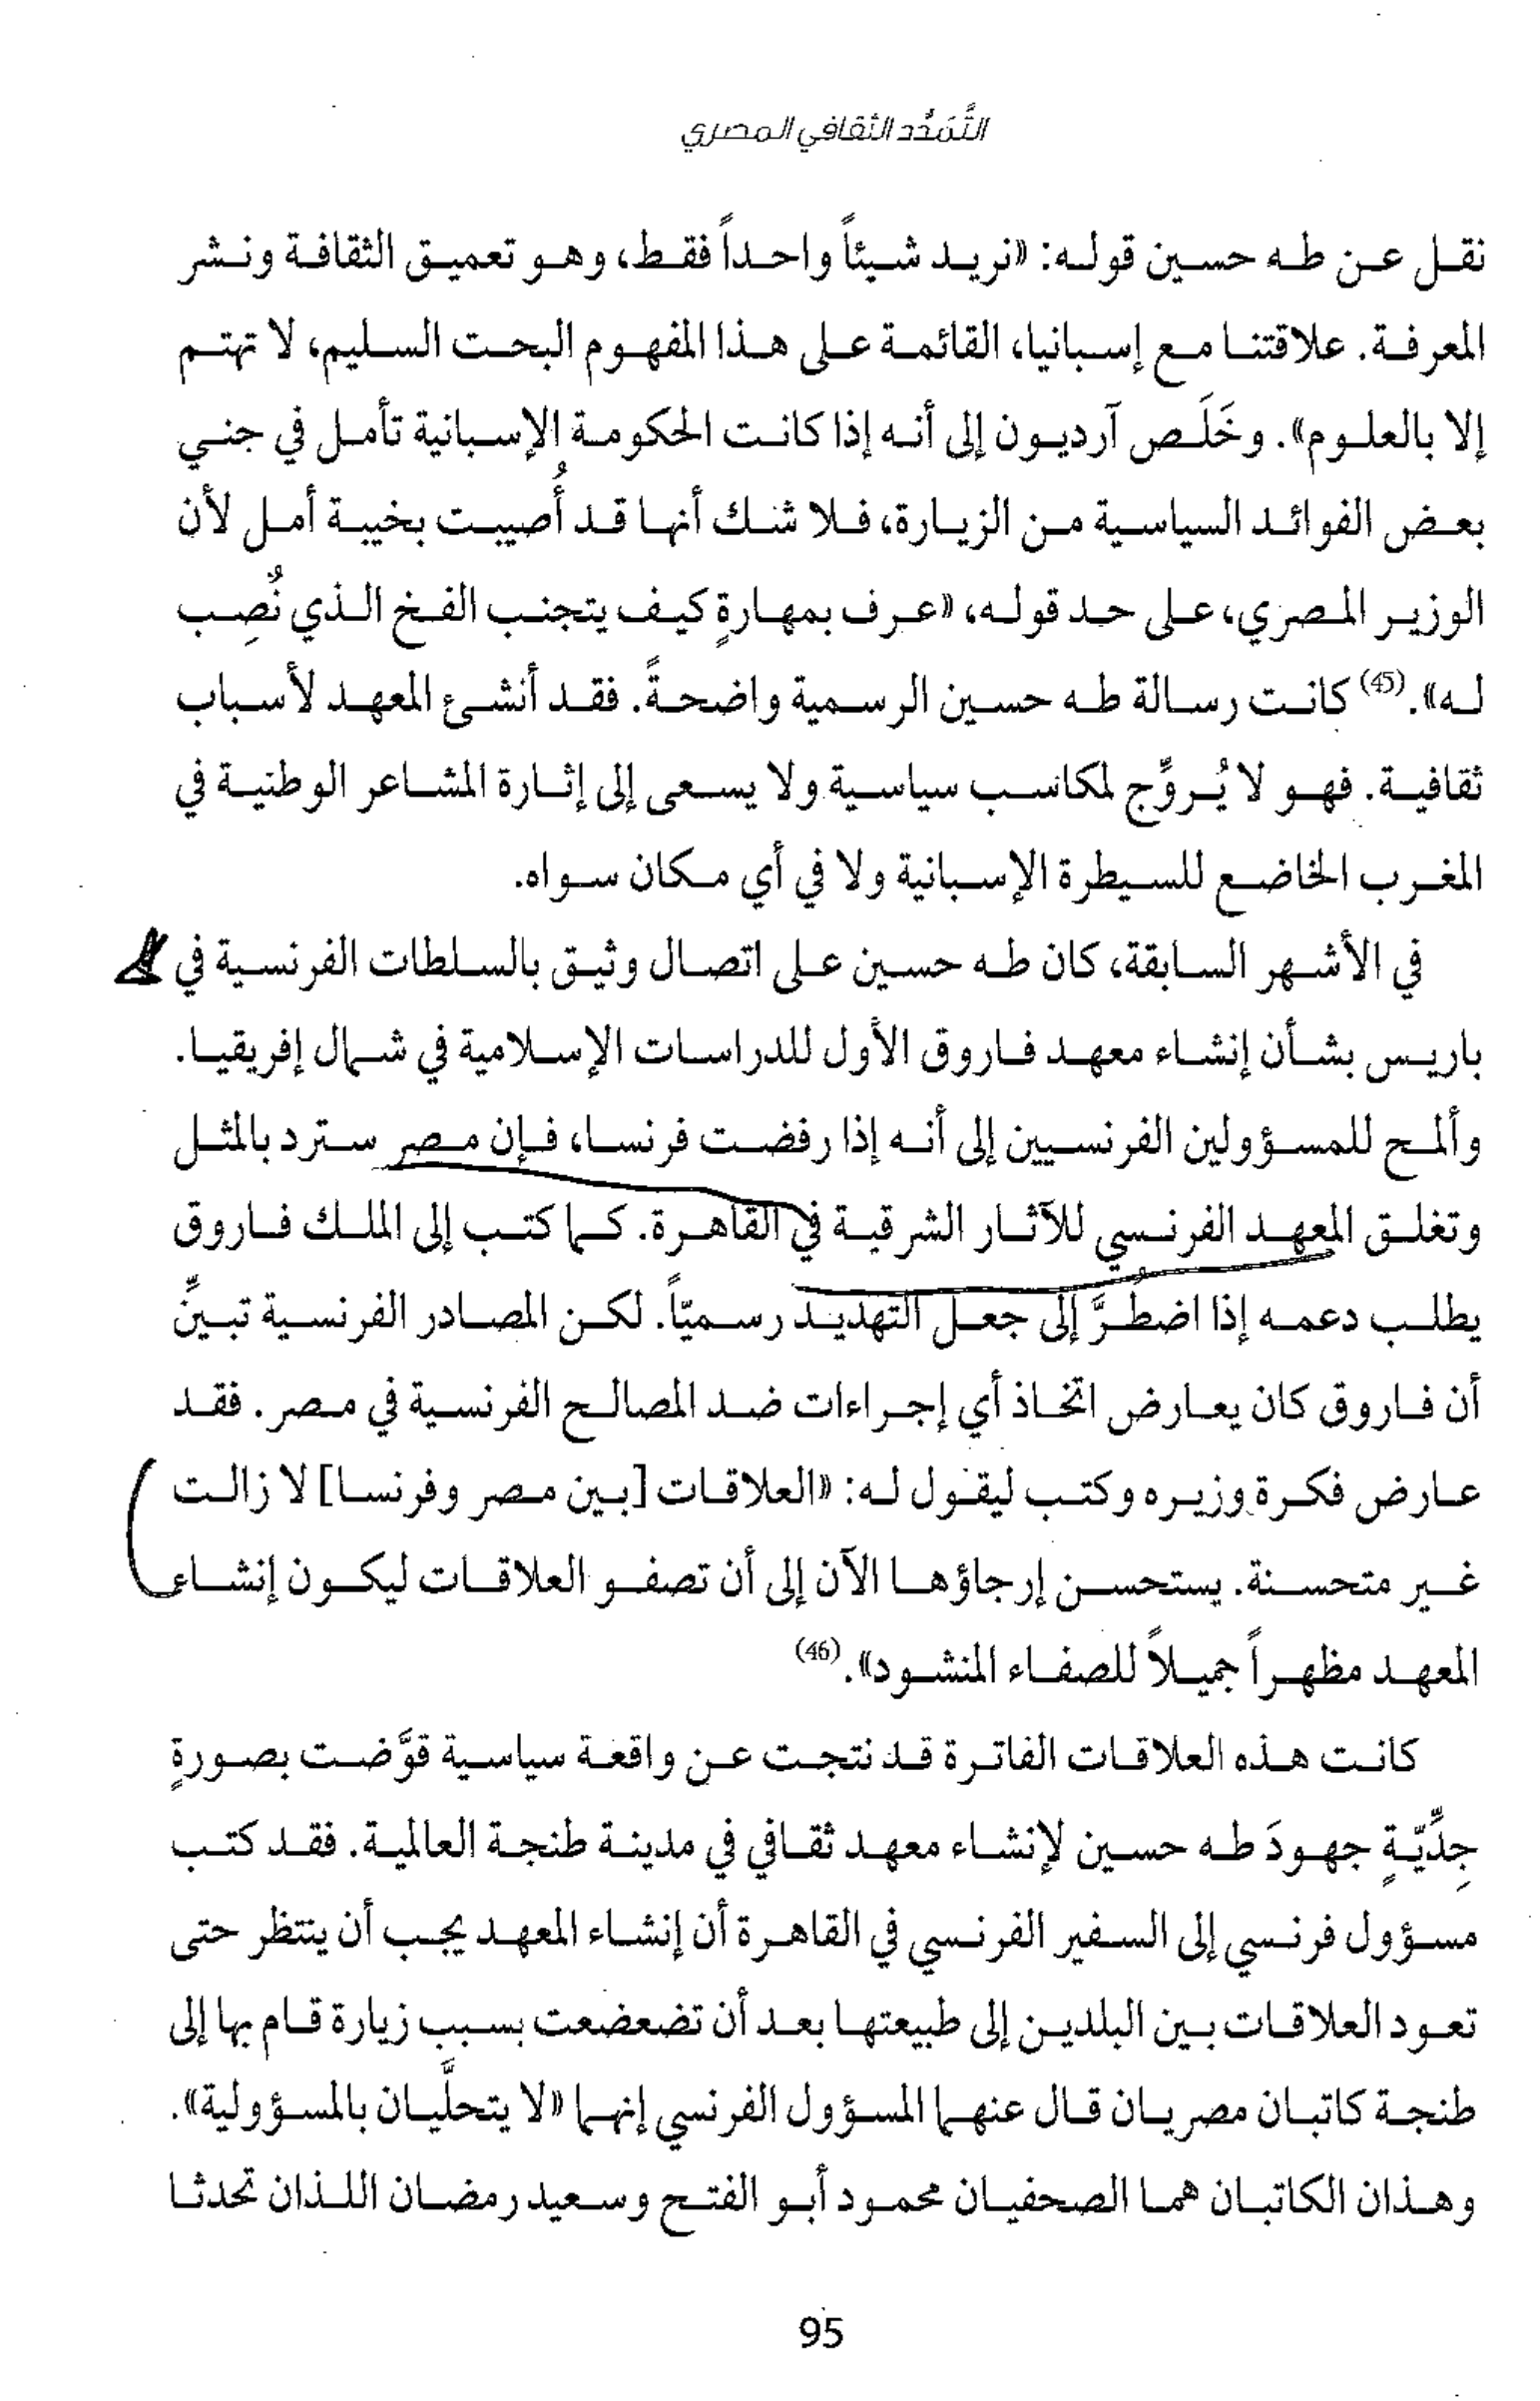 التَّمَدُّد الثقافي المصري
نقل عن طه حسين قوله: «نريد شيئاً واحداً فقط، وهو تعميق الثقافة ونشر
المعرفة. علاقتنا مع إسبانيا، القائمة على هذا المفهوم البحت السليم، لا تهتم
إلا بالعلوم». وخَلَص آرديون إلى أنه إذا كانت الحكومة الإسبانية تأمل في جني
بعض الفوائد السياسية من الزيارة، فلا شك أنها قد أُصيبت بخيبة أمل لأن
الوزير المصري، على حد قوله، «عرف بمهارةٍ كيف يتجنب الفخ الذي نُصِب
له».(45) كانت رسالة طه حسين الرسمية واضحةً. فقد أنشئ المعهد لأسباب
ثقافية. فهو لا يُروِّج لمكاسب سياسية ولا يسعى إلى إثارة المشاعر الوطنية في
المغرب الخاضع للسيطرة الإسبانية ولا في أي مكان سواه.
في الأشهر السابقة، كان طه حسين على اتصال وثيق بالسلطات الفرنسية في
باريس بشأن إنشاء معهد فاروق الأول للدراسات الإسلامية في شمال إفريقيا.
وألمح للمسؤولين الفرنسيين إلى أنه إذا رفضت فرنسا، فإن مصر سترد بالمثل
وتغلق المعهد الفرنسي للآثار الشرقية في القاهرة. كما كتب إلى الملك فاروق
يطلب دعمه إذا اضطُرَّ إلى جعل التهديد رسميّاً. لكن المصادر الفرنسية تبيِّن
أن فاروق كان يعارض اتخاذ أي إجراءات ضد المصالح الفرنسية في مصر. فقد
عارض فكرة وزيره وكتب ليقول له: «العلاقات [بين مصر وفرنسا] لا زالت
غير متحسنة. يستحسن إرجاؤها الآن إلى أن تصفو العلاقات ليكون إنشاء
المعهد مظهراً جميلاً للصفاء المنشود».(46)
كانت هذه العلاقات الفاترة قد نتجت عن واقعة سياسية قوَّضت بصورةٍ
جِدِّيّةٍ جهودَ طه حسين لإنشاء معهد ثقافي في مدينة طنجة العالمية. فقد كتب
مسؤول فرنسي إلى السفير الفرنسي في القاهرة أن إنشاء المعهد يجب أن ينتظر حتى
تعود العلاقات بين البلدين إلى طبيعتها بعد أن تضعضعت بسبب زيارة قام بها إلى
طنجة كاتبان مصريان قال عنهما المسؤول الفرنسي إنهما «لا يتحلَّيان بالمسؤولية».
وهذان الكاتبان هما الصحفيان محمود أبو الفتح وسعيد رمضان اللذان تحدثا
95